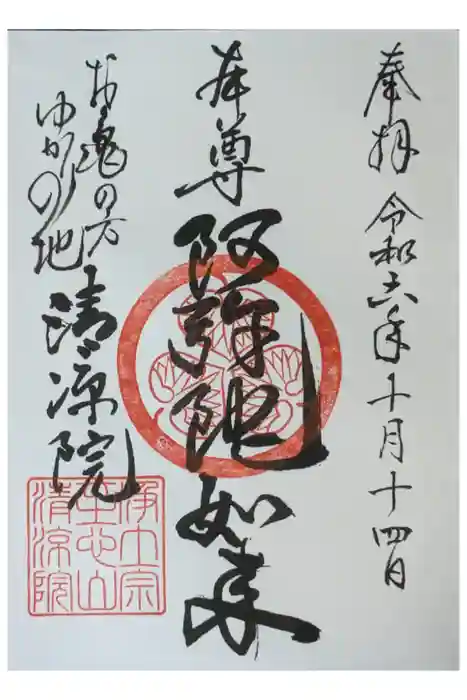 奉拝 令和六年十月十四日
本尊 阿弥陀如来
お亀の方
ゆかりの地
清凉院
浄土宗
清涼院